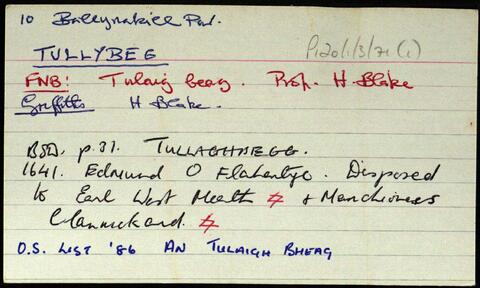 10 Ballynakill Par.
TULLYBEG
P120/1/3/71 (1)
FNB: Tulaig beag. Prop. H. Blake
Griffiths H Blake.
BSD. p.31. TULLAGHBEGG.
1641. Edmund O Flahertye. Disposed
to Earl West Meath & Marchioness
Clanrickard.
O.S. LIST '86 AN TULAIGH BHEAG